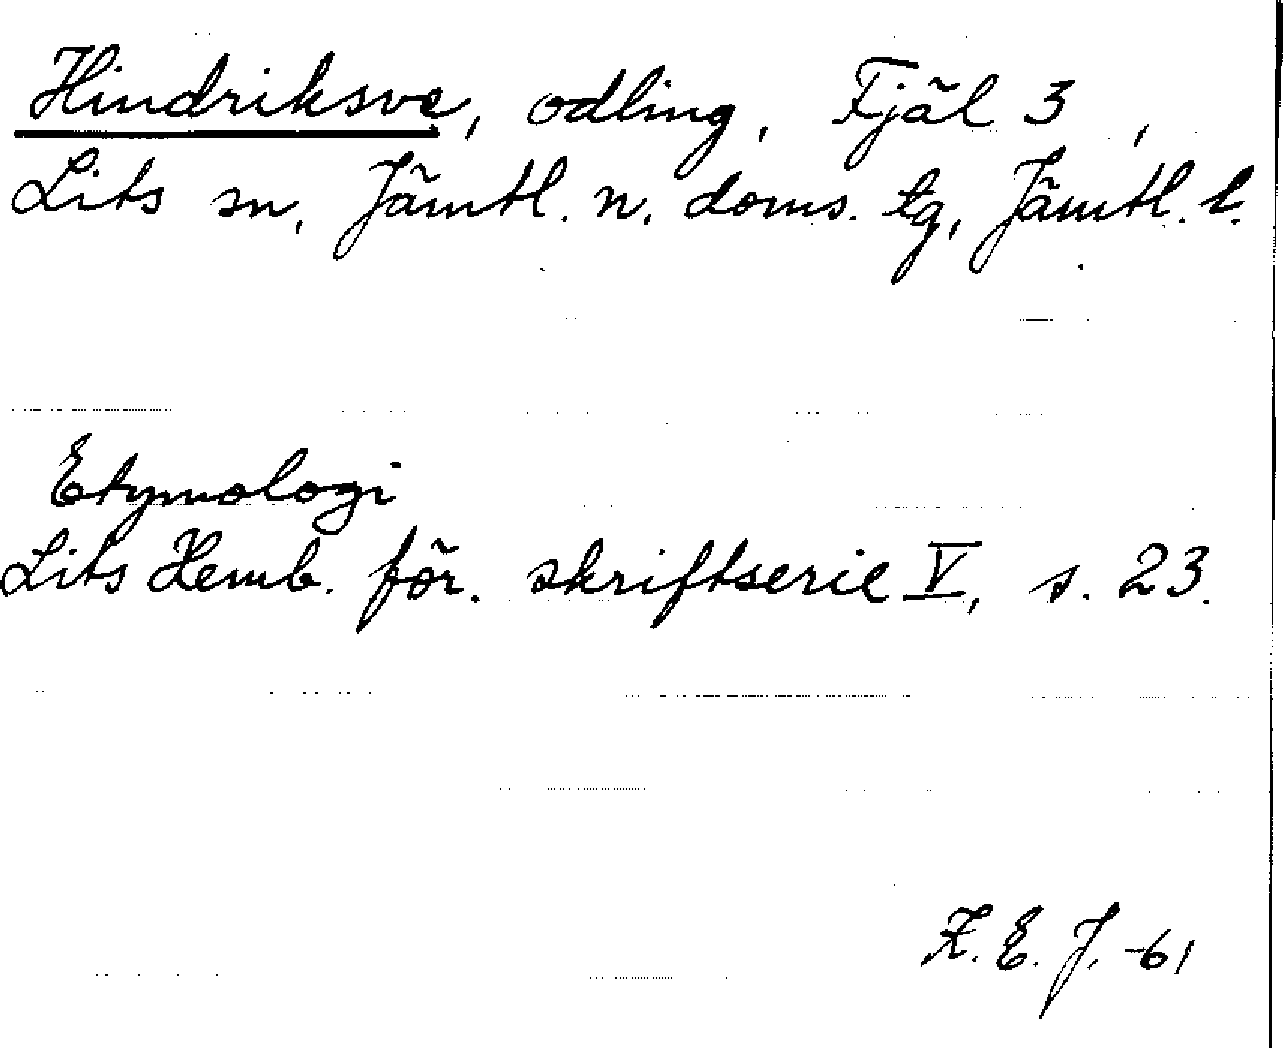 Hindriksve, odling, Fjäl 3,
Lits sn, Jämtl. n. doms. tg, Jämtl. l.
Etymologi
Lits Hemb. för. skriftserie V, s. 23.
K. E. J. -61